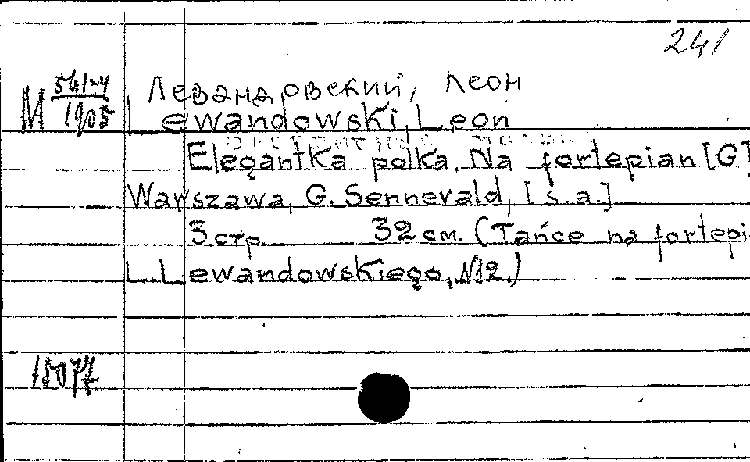 241
М 561-4/1905
Левандовский, Леон
Lewandowski, Leon
Elegantka polka. Na fortepian [G]
Warszawa, G. Sennevald, [s.a.]
3 стр. 32 см. (Tańce na fortepi
L. Lewandowskiego, №12.)
15077